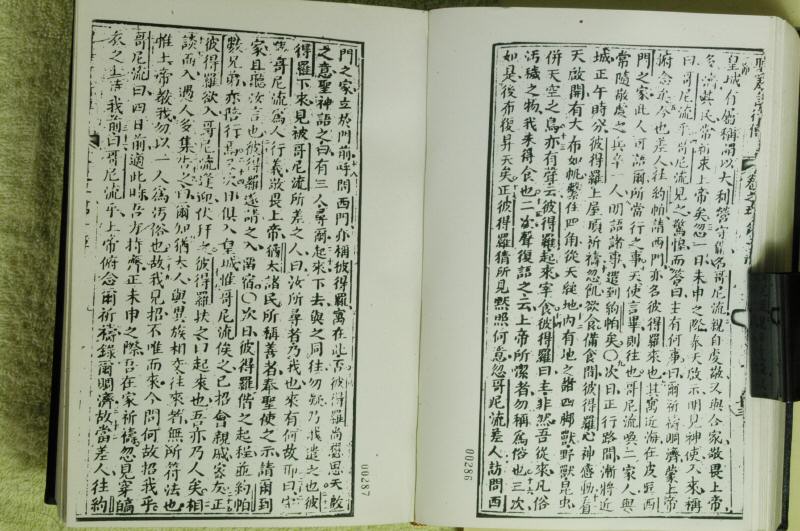 皇城有
稱謂以大利營守備名哥尼流親自虔敬又與合家敬畏上帝
民常祈求上帝矣忽一日未申之際奉天啟示明見神使入來稱
曰哥尼流乎哥尼流見之驚惶而答曰主有何事曰爾祈禱賙濟蒙上帝
俯念矣今也差人往約帕請西門亦名彼得羅來也其寓近海在皮匠西
門之家此人可語爾所當行之事天使言畢則往也哥尼流喚二家人與
常隨敬虔之兵卒一人明語諸事遣到約帕矣○次日正行路間漸將近
城正午時分彼得羅上屋頂祈禱忽飢欲食備食間彼得羅心神感動看
天啟開有大布如帆繫住四角從天縋地內有地之諸四脚獸野獸昆虫
併天空之鳥亦有聲云彼得羅起來宰食彼得羅曰主非然吾從來凡俗
汚穢之物我未得食也二次聲復語之云上帝所潔者勿稱為俗也三次
如是後布復昇天矣正彼得羅猜所見默照何意忽哥尼流差人訪問西
00286
門之家立於門前呼問西門亦稱彼得羅寓在此否彼得羅尚思思天啟
之意聖神語之曰有三人尋爾起來下去與之同往勿疑乃我遣之也彼
得羅下來見被哥尼流所差之人曰汝所尋者乃我也來有何故卽曰守
備哥尼流為人行義敬畏上帝猶太諸民所稱善者奉聖使之示請爾到
家且聽汝言也彼得羅遂請之入而宿○次日彼得羅偕之起程並約帕
數兄弟亦陪行焉又次日俱入皇城惟哥尼流俟之已招會親戚家友正
彼得羅欲入哥尼流迎伏拜之彼得羅扶之曰起來也吾亦乃人矣相
談而入遇人多集
之曰爾知猶太人與異族相交往來者無所符法也
惟上帝教我勿以一人為汚俗也故我見招不唯而來今問何故招我乎
哥尼流曰四日前適此時吾方持齋正未申之際吾在家祈禱忽見穿縞
衣之士語我前曰哥尼流乎上帝俯念爾祈禱錄爾賙濟故當差人往約
00287